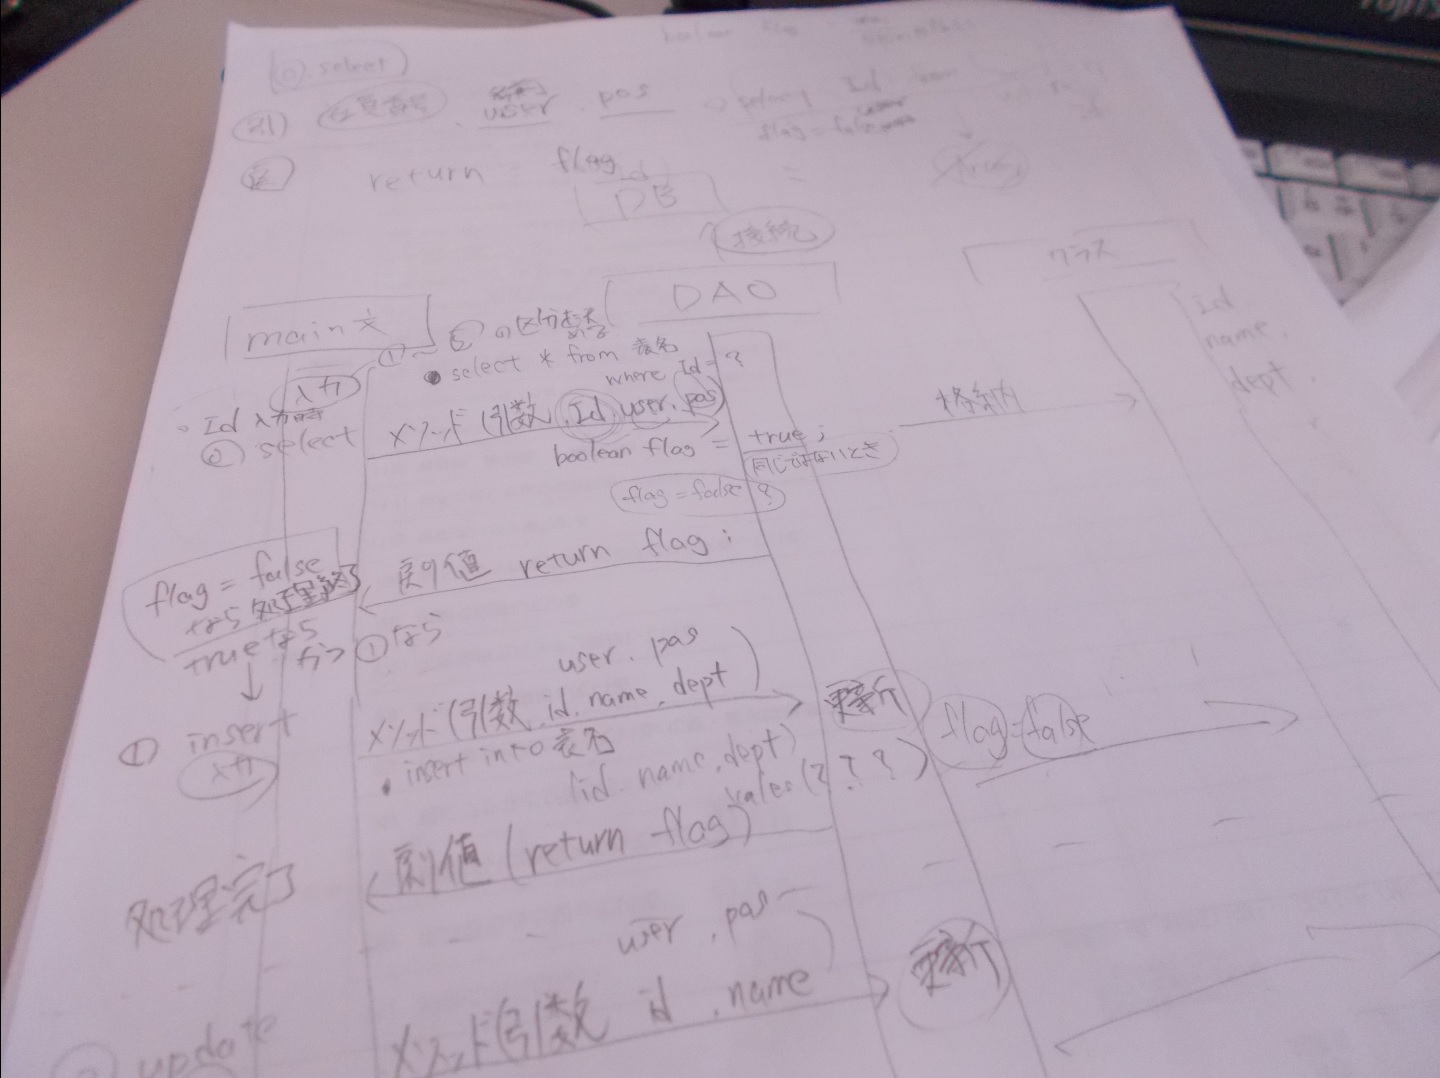 (0) select
引 社員番号 . user . pas
flag = false
return flag
Id
true
DB
接続
クラス
DAO
main文
id
name
dept
①~ の区分番号
select * from 表名
where Id = ?
入力
Id 入力
② select
メソッド(引数, Id, user, pas)
格納
boolean flag = true;
同じではないとき
flag = false ?
戻り値 return flag;
flag = false
なら 処理終了
trueなら
かつ ①なら
user. pas
メソッド(引数, id, name, dept)
更新
flag = false
① insert
入力
insert into 表名
(id. name, dept)
vales (? ? ?)
戻り値 (return flag)
処理完了
user . pas
メソッド(引数 id . name
更新
update